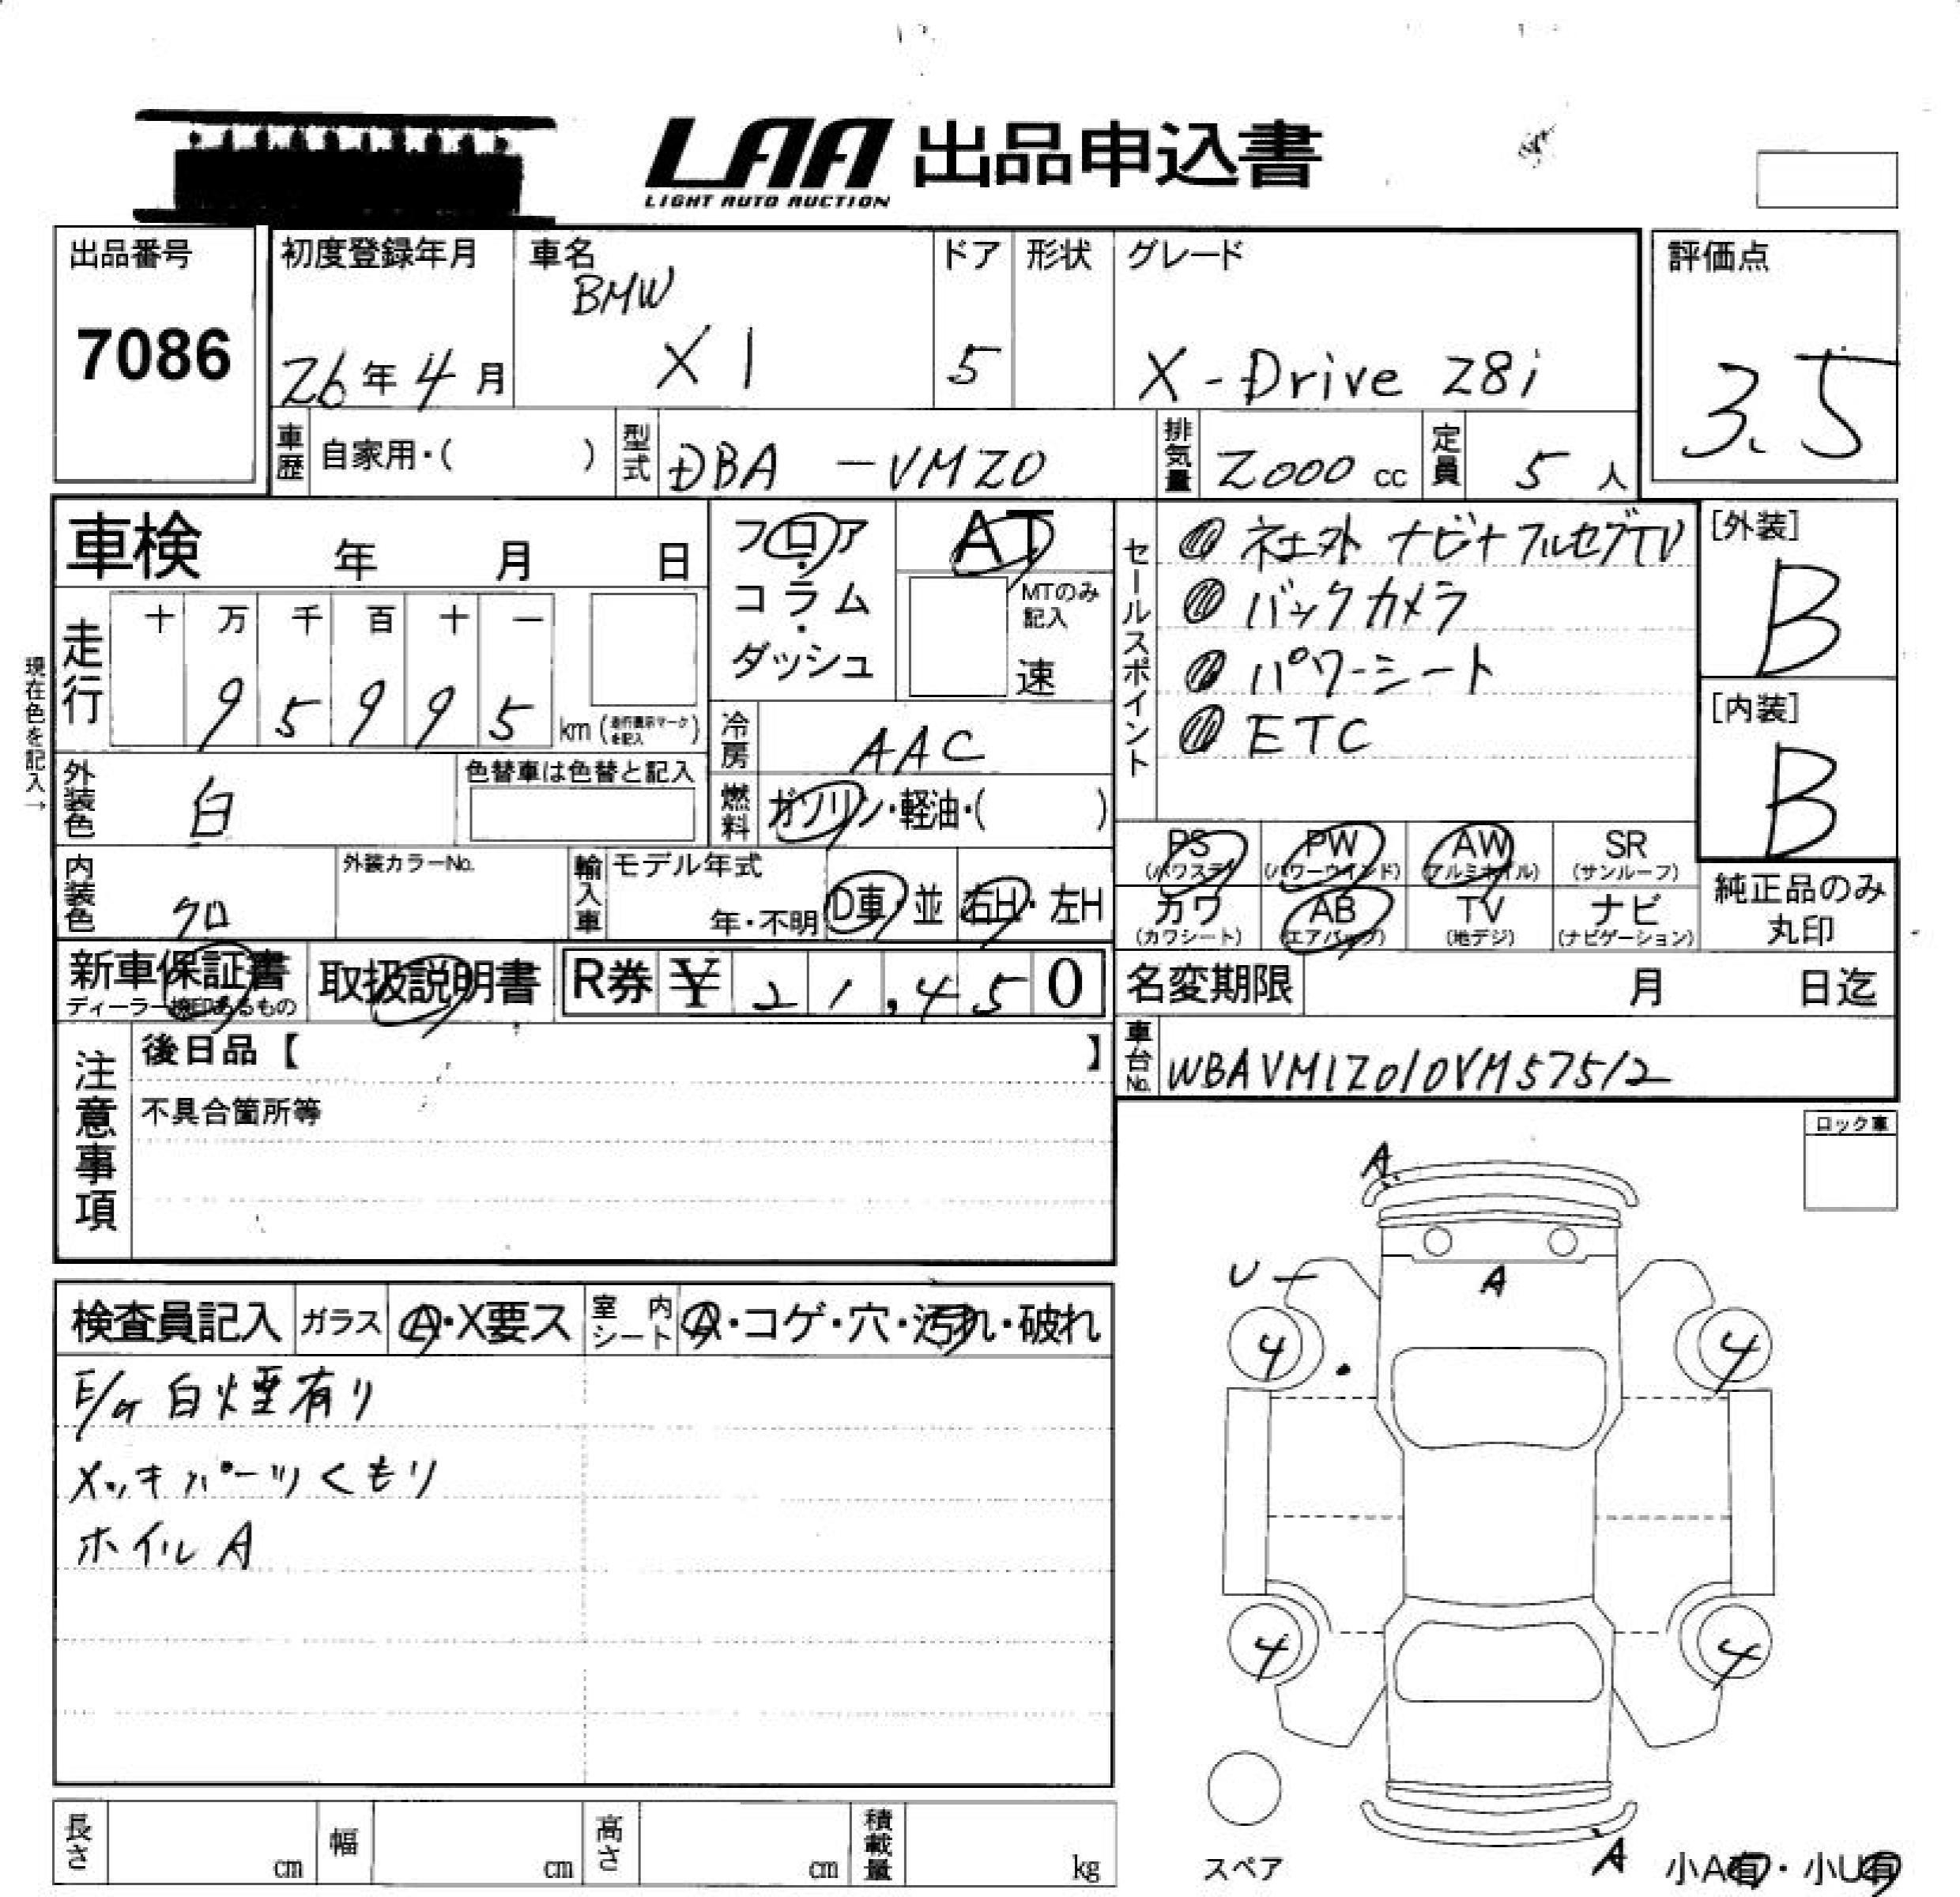 LAA 出品申込書
LIGHT AUTO AUCTION
出品番号
7086
初度登録年月
26年4月
車名
BMW
X1
ドア
5
形状
グレード
X-Drive 28i
評価点
3.5
車歴 自家用・( )
型式 DBA -VM20
排気量 2000 cc
定員 5 人
車検 年 月 日
フロア・コラム・ダッシュ
AT
MTのみ記入
速
セールスポイント
社外 ナビ+フルセグTV
バックカメラ
パワーシート
ETC
[外装]
B
[内装]
B
現在色を記入→
走行
十 万 千 百 十 一
9 5 9 9 5 km (走行表示マークを記入)
冷房 AAC
外装色 白
色替車は色替と記入
燃料 ガソリン・軽油・( )
内装色 クロ
外装カラーNo.
輸入車 モデル年式
年・不明
D車・並
右H・左H
PS (パワステ)
PW (パワーウインド)
AW (アルミホイル)
SR (サンルーフ)
カワ (カワシート)
AB (エアバッグ)
TV (地デジ)
ナビ (ナビゲーション)
純正品のみ丸印
新車保証書
ディーラー捺印あるもの
取扱説明書
R券 ¥ 21,450
名変期限 月 日迄
車台No. WBAVM1Z010VM57512
注意事項
後日品【 】
不具合箇所等
ロック車
検査員記入
ガラス A・X要ス
室内シート A・コゲ・穴・汚れ・破れ
E/G 白煙有り
メッキパーツくもり
ホイルA
A
U
A
4
4
4
4
A
スペア
小A有・小U有
長さ cm
幅 cm
高さ cm
積載量 kg